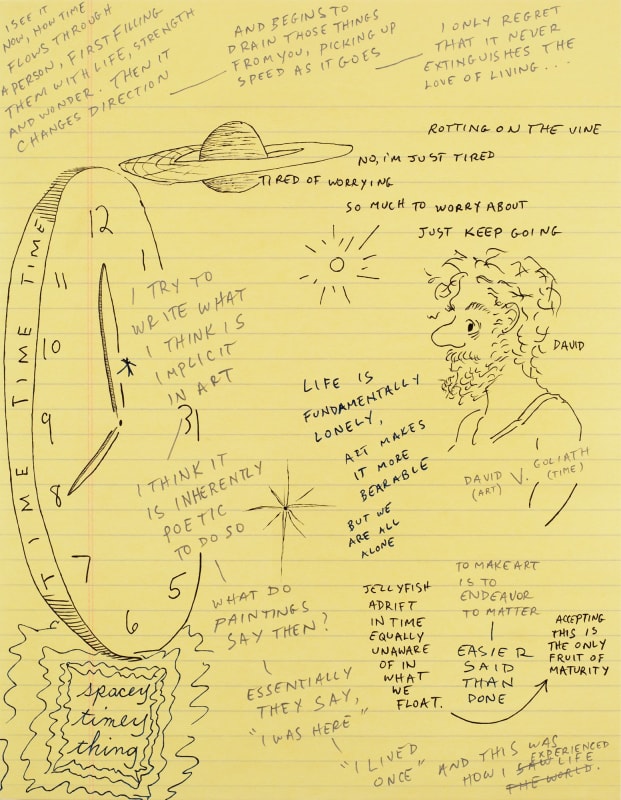 I SEE IT
NOW, HOW TIME
FLOWS THROUGH
A PERSON, FIRST FILLING
THEM WITH LIFE, STRENGTH
AND WONDER. THEN IT
CHANGES DIRECTION
AND BEGINS TO
DRAIN THOSE THINGS
FROM YOU, PICKING UP
SPEED AS IT GOES
I ONLY REGRET
THAT IT NEVER
EXTINGUISHES THE
LOVE OF LIVING...
ROTTING ON THE VINE
NO, I'M JUST TIRED
TIRED OF WORRYING
SO MUCH TO WORRY ABOUT
JUST KEEP GOING
TIME TIME TIME TIME
12
1
11
10
9
8
7
6
5
31
I TRY TO
WRITE WHAT
I THINK IS
IMPLICIT
IN ART
I THINK IT
IS INHERENTLY
POETIC
TO DO SO
WHAT DO
PAINTINGS
SAY THEN?
ESSENTIALLY
THEY SAY,
"I WAS HERE"
"I LIVED
ONCE"
AND THIS WAS
HOW I SAW LIFE
EXPERIENCED
THE WORLD.
DAVID
DAVID
(ART)
V.
GOLIATH
(TIME)
LIFE IS
FUNDAMENTALLY
LONELY,
ART MAKES
IT MORE
BEARABLE
BUT WE
ARE ALL
ALONE
JELLYFISH
ADRIFT
IN TIME
EQUALLY
UNAWARE
OF IN
WHAT
WE
FLOAT.
TO MAKE ART
IS TO
ENDEAVOR
TO MATTER
EASIER
SAID
THAN
DONE
ACCEPTING
THIS IS
THE ONLY
FRUIT OF
MATURITY
spacey
timey
thing